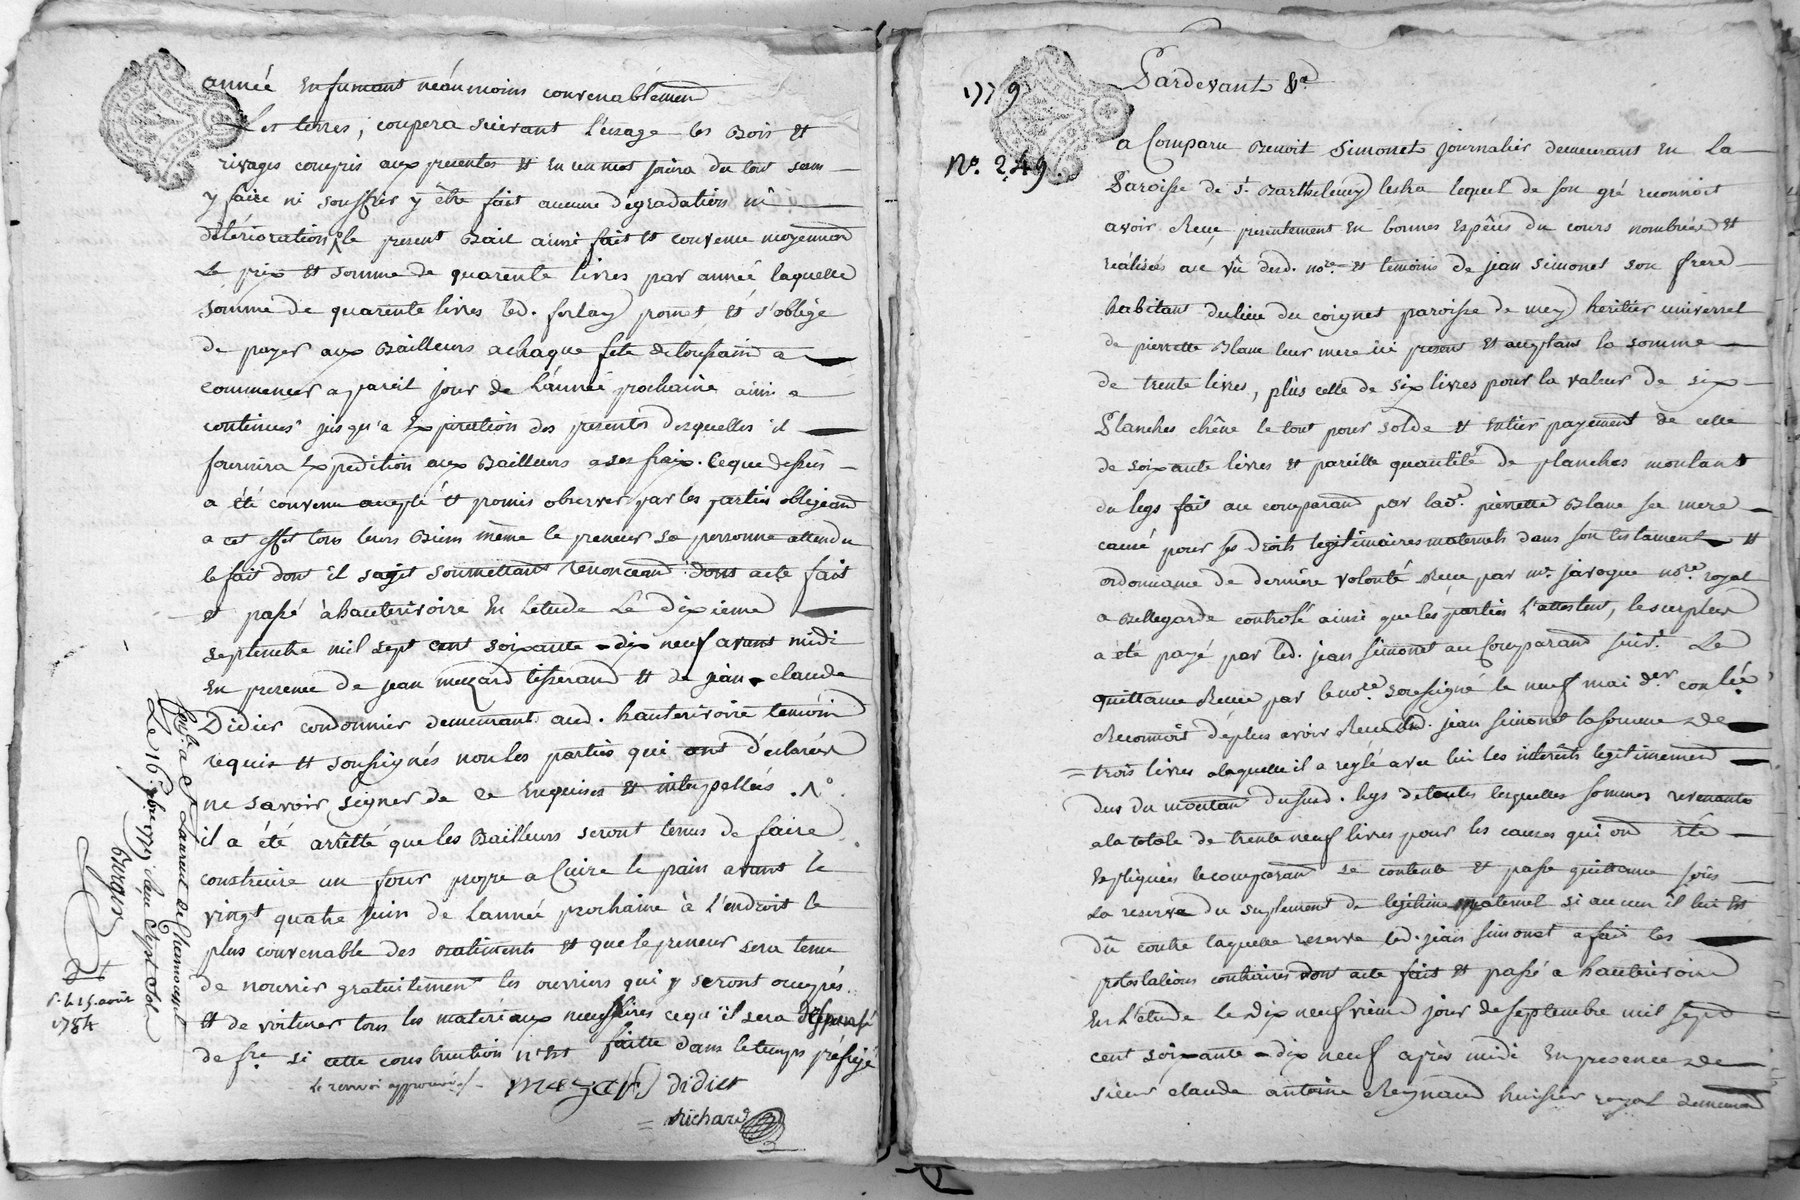 année En fumant néanmoins convenablement
Les terres, coupera suivant l'usage les Bois et
rivages compris aux presentes et En un mot joüira du tout sans
y faire ni souffrir y être fait aucune dégradation ni
détérioration, le present Bail ainsi fait et convenu moyennant
Le prix et somme de quarente livres par année laquelle
somme de quarente livres led. forlay promet et s'oblige
de payer aux Bailleurs a chaque fête de toussaint a
commencer a pareil jour de L'année prochaine ainsi a
continuer jusqu'a Expiration des presentes desquelles il
fournira Expedition aux Bailleurs a ses fraix. Ce que dessus
a été convenu accepté et promis observer par les parties obligeant
a cet effet tous leurs Biens même le preneur sa personne attendu
le fait dont il sagit soumettant renonceant dont acte fait
et passé à hauterivoire En letude Le dixieme
septembre mil sept cent soixante-dix neuf avant midi
En presence de jean mezard tisserand et de jean-claude
Didier cordonnier demeurant aud. hauterivoire temoin
requis et soussignés non les parties qui ont déclarés
ne savoir signer de ce Enquises et interpellés.
il a été arrêtté que les Bailleurs seront tenus de faire
construire un four propre a Cuire le pain avant le
vingt quatre juin de Lannée prochaine à l'endroit le
plus convenable des Batiments et que le preneur sera tenu
de nourrir gratuitement les ouvriers qui y seront occupés
et de voiturer tous les matériaux necessaires ce qu'il sera dispensé
de fre. si cette construction n'est faitte dans le temps préfigé
Le renvoi approuvé
mezard didier
Richard
Conlé. a St Laurent de Chamousset
Le 16. 7bre 1779 Reçu
1784
1779
No. 249
Pardevant &a
a Comparu Benoit Simonet journalier demeurant En La
Paroisse de St. Barthelemy lestra lequel de son gré reconnoit
avoir Reçu presentement En bonnes Espèces du cours nombrées et
réalisées a vû dud. nore. et temoins de jean Simonet son frere
habitant du lieu du coignet paroisse de mey heritier universel
de pierrette Blanc leur mere ici present et acceptant la somme
de trente livres, plus celle de six livres pour la valeur de six
Planches chêne le tout pour solde et entier payement de celle
de soixante livres et pareille quantité de planches montant
du legs fait au comparant par lad. pierrette Blanc sa mere
causé pour ses droits legitimaires maternels dans son testament et
ordonnance de derniere volonté Reçu par me. javogue nore. royal
a Bellegarde controlé ainsi que les parties l'attestent, le surplus
a été payé par led. jean Simonet au Comparant suivt. Le
quittance Reçue par le nore soussigné le neuf mai der. conlée
Reconnoit déplus avoir Reçu dud. jean Simonet la somme de
trois livres a laquelle il a réglé avec lui les interêts legitimement
dus du montant dususd. legs de toutes lesquelles sommes revenants
a la totale de trente neuf livres pour les causes qui ont été
Expliquées le comparant se contente et passe quittance sous
La reserve du suplement de legitime maternel si aucun il lui Est
dû contre laquelle reserve led. jean Simonet a fait les
protestations contraires dont acte fait et passé a hauterivoire
En l'étude Le dix neufvieme jour de septembre mil sept
cent soixante-dix neuf après midi En presence de
sieur claude antoine Reynaud huissier royal demeurant